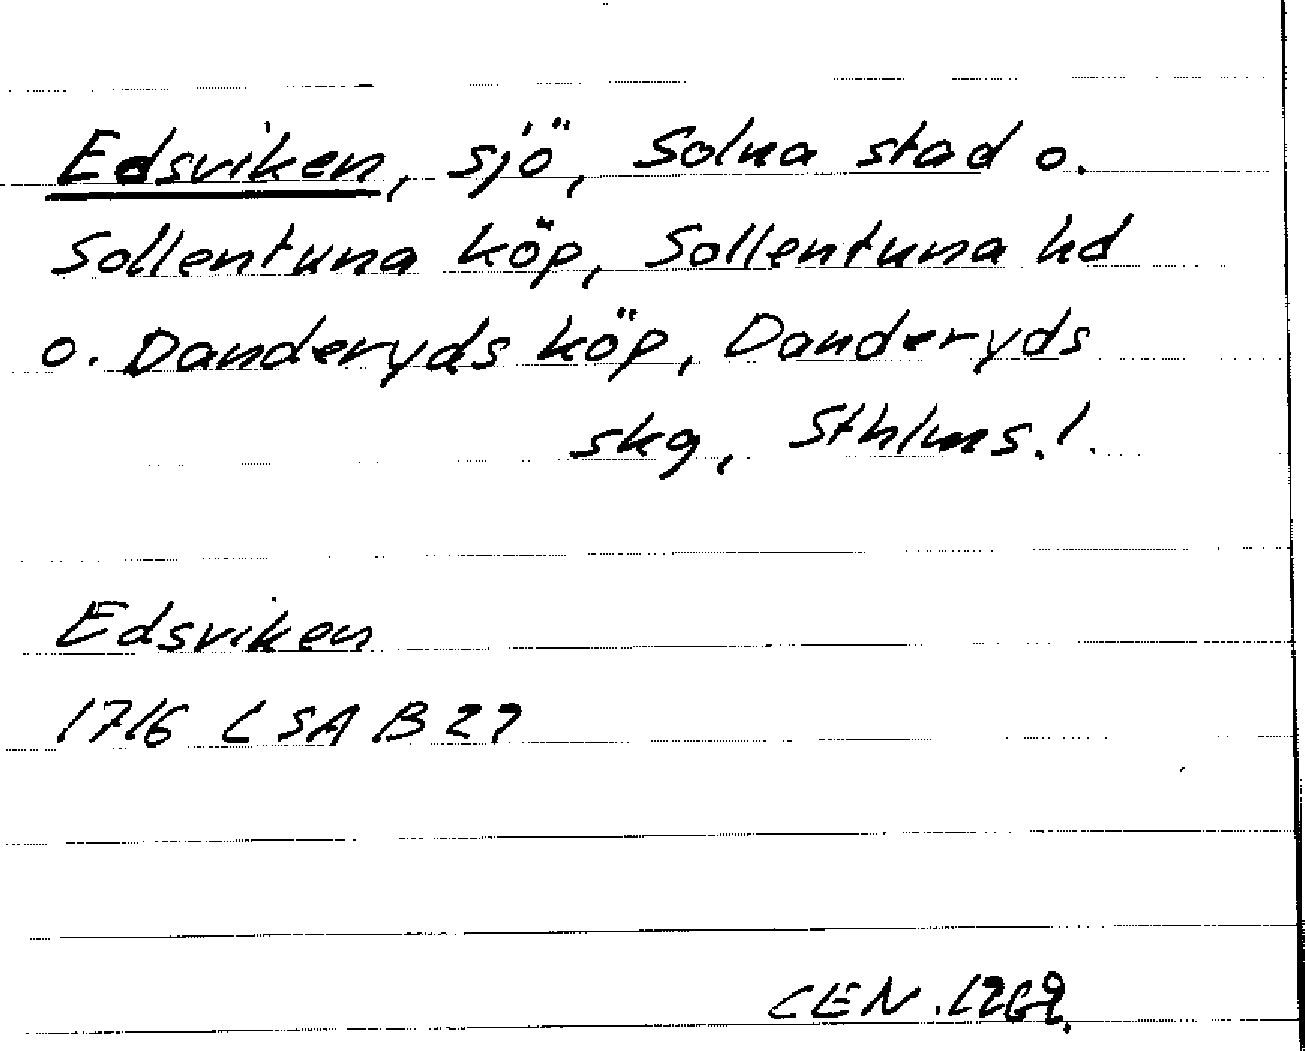 Edsviken, sjö, Solna stad o.
Sollentuna köp, Sollentuna hd
o. Danderyds köp, Danderyds
skg, Sthlms.l.
Edsviken
1716 LSA B 27
CEN.